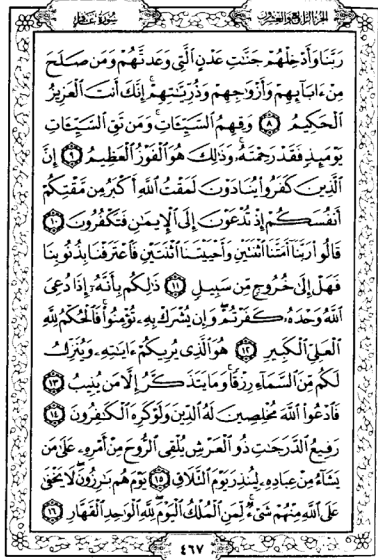 الجزء الرابع والعشرون سورة غافر
رَبَّنَا وَأَدْخِلْهُمْ جَنَّٰتِ عَدْنٍ ٱلَّتِى وَعَدتَّهُمْ وَمَن صَلَحَ
مِنْ ءَابَآئِهِمْ وَأَزْوَٰجِهِمْ وَذُرِّيَّٰتِهِمْ إِنَّكَ أَنتَ ٱلْعَزِيزُ
ٱلْحَكِيمُ ٨ وَقِهِمُ ٱلسَّيِّـَٔاتِ وَمَن تَقِ ٱلسَّيِّـَٔاتِ
يَوْمَئِذٍ فَقَدْ رَحِمْتَهُۥ وَذَٰلِكَ هُوَ ٱلْفَوْزُ ٱلْعَظِيمُ ٩ إِنَّ
ٱلَّذِينَ كَفَرُوا۟ يُنَادَوْنَ لَمَقْتُ ٱللَّهِ أَكْبَرُ مِن مَّقْتِكُمْ
أَنفُسَكُمْ إِذْ تُدْعَوْنَ إِلَى ٱلْإِيمَٰنِ فَتَكْفُرُونَ ١٠
قَالُوا۟ رَبَّنَآ أَمَتَّنَا ٱثْنَتَيْنِ وَأَحْيَيْتَنَا ٱثْنَتَيْنِ فَٱعْتَرَفْنَا بِذُنُوبِنَا
فَهَلْ إِلَىٰ خُرُوجٍ مِّن سَبِيلٍ ١١ ذَٰلِكُم بِأَنَّهُۥٓ إِذَا دُعِىَ
ٱللَّهُ وَحْدَهُۥ كَفَرْتُمْ وَإِن يُشْرَكْ بِهِۦ تُؤْمِنُوا۟ فَٱلْحُكْمُ لِلَّهِ
ٱلْعَلِىِّ ٱلْكَبِيرِ ١٢ هُوَ ٱلَّذِى يُرِيكُمْ ءَايَٰتِهِۦ وَيُنَزِّلُ
لَكُم مِّنَ ٱلسَّمَآءِ رِزْقًا وَمَا يَتَذَكَّرُ إِلَّا مَن يُنِيبُ ١٣
فَٱدْعُوا۟ ٱللَّهَ مُخْلِصِينَ لَهُ ٱلدِّينَ وَلَوْ كَرِهَ ٱلْكَٰفِرُونَ ١٤
رَفِيعُ ٱلدَّرَجَٰتِ ذُو ٱلْعَرْشِ يُلْقِى ٱلرُّوحَ مِنْ أَمْرِهِۦ عَلَىٰ مَن
يَشَآءُ مِنْ عِبَادِهِۦ لِيُنذِرَ يَوْمَ ٱلتَّلَاقِ ١٥ يَوْمَ هُم بَٰرِزُونَ لَا يَخْفَىٰ
عَلَى ٱللَّهِ مِنْهُمْ شَىْءٌ لِّمَنِ ٱلْمُلْكُ ٱلْيَوْمَ لِلَّهِ ٱلْوَٰحِدِ ٱلْقَهَّارِ ١٦
٤٦٧